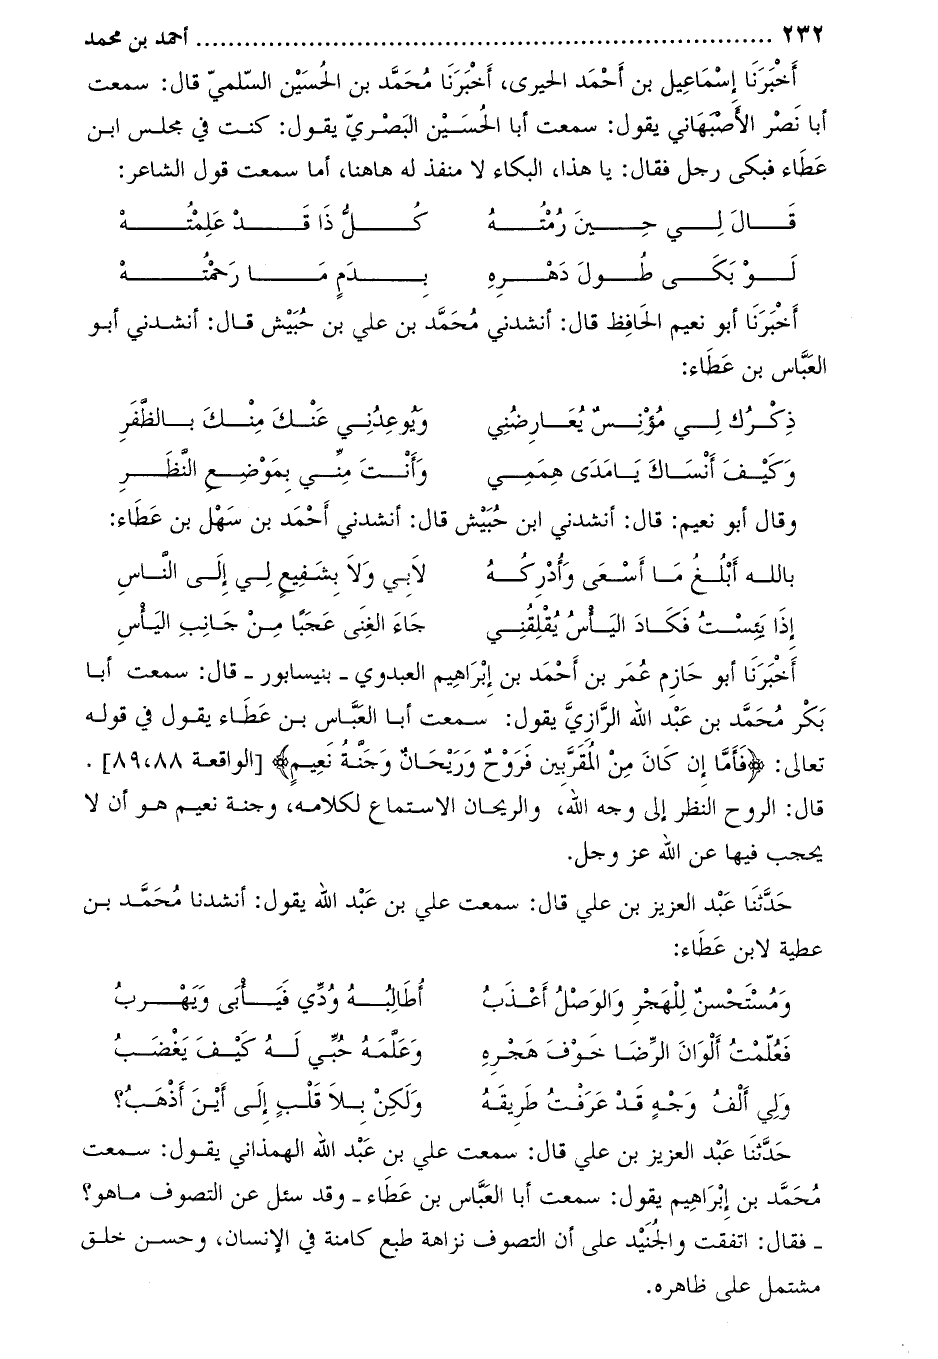 ٢٣٢ ........................................................................ أحمد بن محمد
أَخْبَرَنَا إِسْمَاعِيل بن أَحْمَد الحيرى، أَخْبَرَنَا مُحَمَّد بن الحُسَيْن السّلميّ قال: سمعت
أبا نَصْر الأَصْبَهَاني يقول: سمعت أبا الحُسَيْن البَصْريّ يقول: كنت في مجلس ابن
عَطَاء فبكى رجل فقال: يا هذا، البكاء لا منفذ له هاهنا، أما سمعت قول الشاعر:
قَالَ لِي حِينَ رُمْتُهُ كُلُّ ذَا قَدْ عَلِمْتُهُ
لَوْ بَكَى طُولَ دَهْرِهِ بِدَمٍ مَا رَحْمْتُهُ
أَخْبَرَنَا أبو نعيم الحَافِظ قال: أنشدني مُحَمَّد بن علي بن حُبَيْش قال: أنشدني أبو
العَبَّاس بن عَطَاء:
ذِكْرُكَ لِي مُؤْنِسٌ يُعَارِضُنِي وَيُوعِدُنِي عَنْكَ مِنْكَ بِالظَّفَرِ
وَكَيْفَ أَنْسَاكَ يَامَدَى هِمَمِي وَأَنْتَ مِنِّي بِمَوْضِعِ النَّظَرِ
وقال أبو نعيم: قال: أنشدني ابن حُبَيْش قال: أنشدني أَحْمَد بن سَهْل بن عَطَاء:
بالله أَبْلُغُ مَا أَسْعَى وَأُدْرِكُهُ لاَبِي وَلاَ بِشَفِيعٍ لِي إِلَى النَّاسِ
إِذَا يَئِسْتُ فَكَادَ اليَأْسُ يُقْلِقُنِي جَاءَ الغِنَى عَجَبًا مِنْ جَانِبِ اليَأْسِ
أَخْبَرَنَا أبو حَازِم عُمَر بن أَحْمَد بن إِبْرَاهِيم العبدوي ـ بنيسابور ـ قال: سمعت أبا
بَكْر مُحَمَّد بن عَبْد الله الرَّازِيَّ يقول: سمعت أبا العَبَّاس بن عَطَاء يقول في قوله
تعالى: ﴿فَأَمَّا إِن كَانَ مِنْ الْمُقَرَّبِين فَرَوْحٌ وَرَيْحَانٌ وَجَنَّةُ نَعِيمٍ﴾ [الواقعة ٨٨،٨٩] .
قال: الروح النظر إلى وجه الله، والريحان الاستماع لكلامه، وجنة نعيم هو أن لا
يحجب فيها عن الله عز وجل.
حَدَّثَنَا عَبْد العزيز بن علي قال: سمعت علي بن عَبْد الله يقول: أنشدنا مُحَمَّد بن
عطية لابن عَطَاء:
وَمُسْتَحْسِنٌ لِلْهَجْرِ وَالوَصْلُ أَعْذَبُ أُطَالِبُهُ وُدِّي فَيَأْبَى وَيَهْرِبُ
فَعُلِّمْتُ أَلْوَانَ الرِّضَا خَوْفَ هَجْرِهِ وَعَلَّمَهُ حُبِّي لَهُ كَيْفَ يَغْضَبُ
وَلِي أَلْفُ وَجْهٍ قَدْ عَرَفْتُ طَرِيقَهُ وَلَكِنْ بِلاَ قَلْبٍ إِلَى أَيْنَ أَذْهَبُ؟
حَدَّثَنَا عَبْد العزيز بن علي قال: سمعت علي بن عَبْد الله الهمذاني يقول: سمعت
مُحَمَّد بن إِبْرَاهِيم يقول: سمعت أبا العَبَّاس بن عَطَاء ـ وقد سئل عن التصوف ماهو؟
ـ فقال: اتفقت والجُنَيْد على أن التصوف نزاهة طبع كامنة في الإنسان، وحسن خلق
مشتمل على ظاهره.